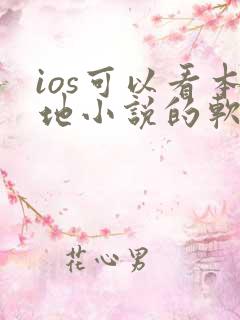 ios可以看本
地小說的軟
花心男